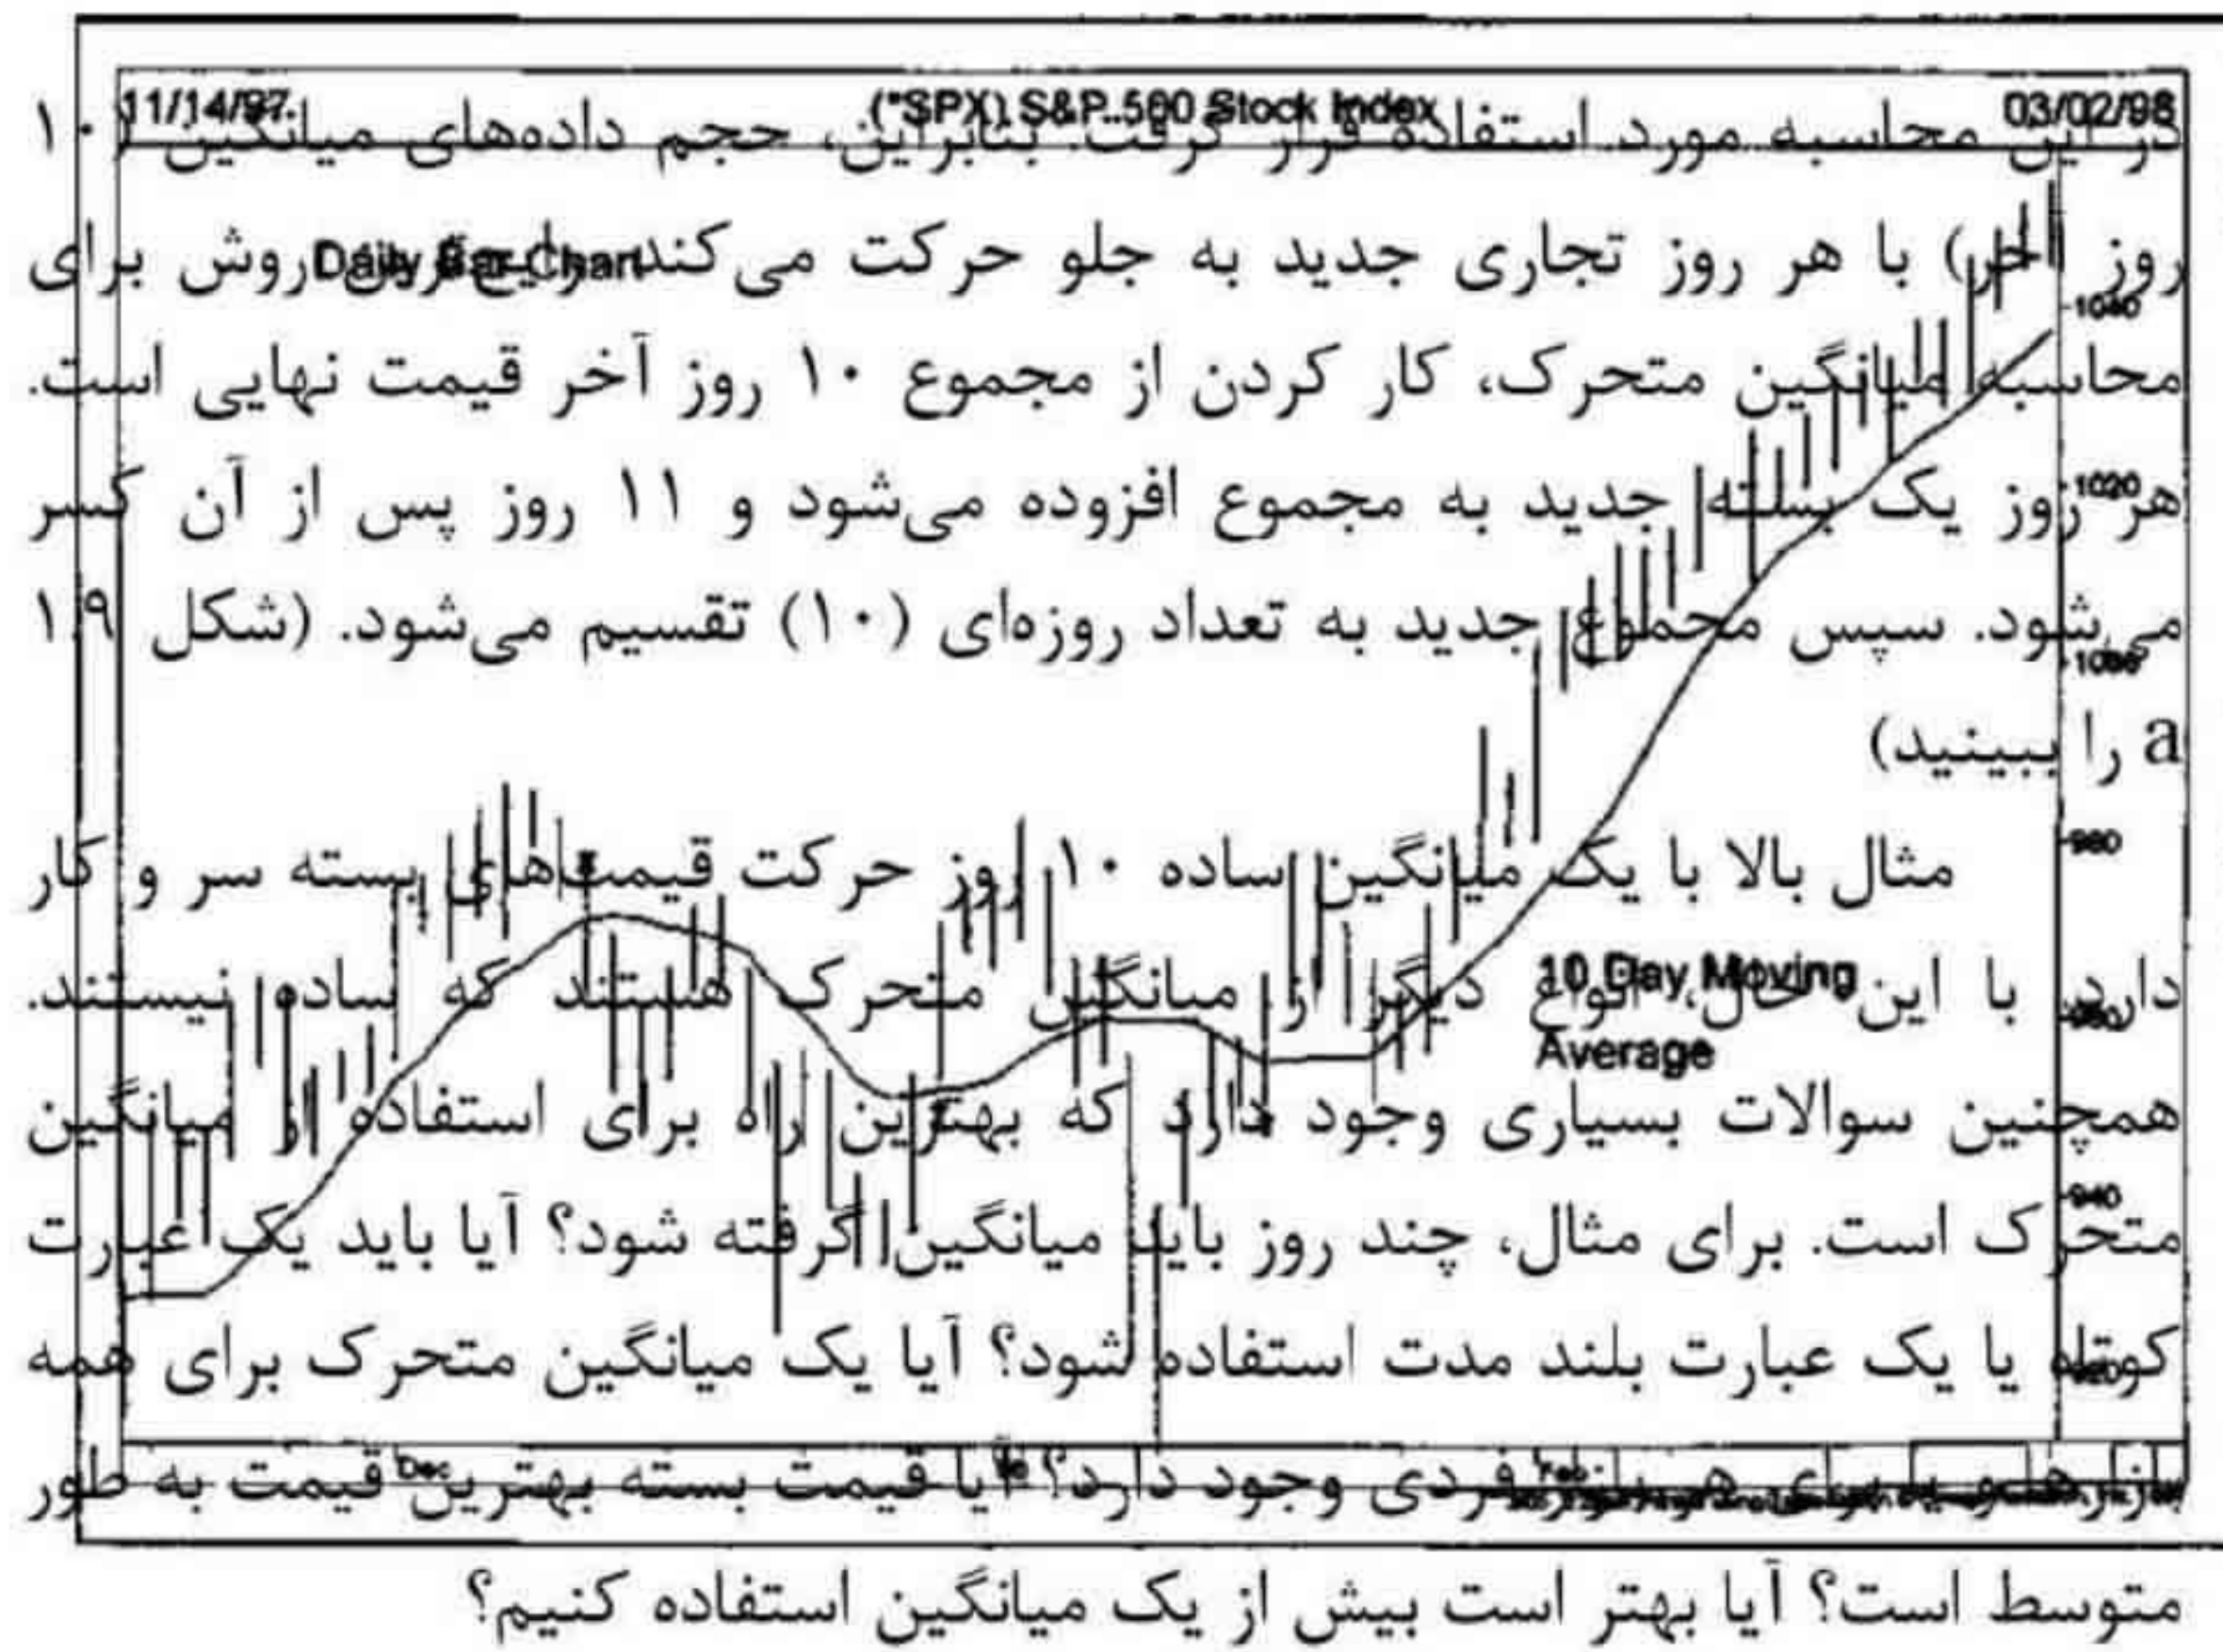 11/14/97
(*SPX) S&P 500 Stock Index
03/02/98
در این محاسبه مورد استفاده قرار گرفت. بنابراین، حجم داده‌های میانگین (۱۰
Daily Bar Chart
روز آخر) با هر روز تجاری جدید به جلو حرکت می‌کند. رایج‌ترین روش برای
1040
محاسبه میانگین متحرک، کار کردن از مجموع ۱۰ روز آخر قیمت نهایی است.
هر روز یک بسته جدید به مجموع افزوده می‌شود و ۱۱ روز پس از آن کسر
1020
می‌شود. سپس مجموع جدید به تعداد روزهای (۱۰) تقسیم می‌شود. (شکل ۱۹
1000
a را ببینید)
980
مثال بالا با یک میانگین ساده ۱۰ روز حرکت قیمت‌های بسته سر و کار
10 Day Moving
دارد. با این حال، انواع دیگر از میانگین متحرک هستند که ساده نیستند.
960
Average
همچنین سوالات بسیاری وجود دارد که بهترین راه برای استفاده از میانگین
940
متحرک است. برای مثال، چند روز باید میانگین گرفته شود؟ آیا باید یک عبارت
کوتاه یا یک عبارت بلند مدت استفاده شود؟ آیا یک میانگین متحرک برای همه
920
Dec
بازارها و یا برای هر بازار فردی وجود دارد؟ آیا قیمت بسته بهترین قیمت به طور
متوسط است؟ آیا بهتر است بیش از یک میانگین استفاده کنیم؟